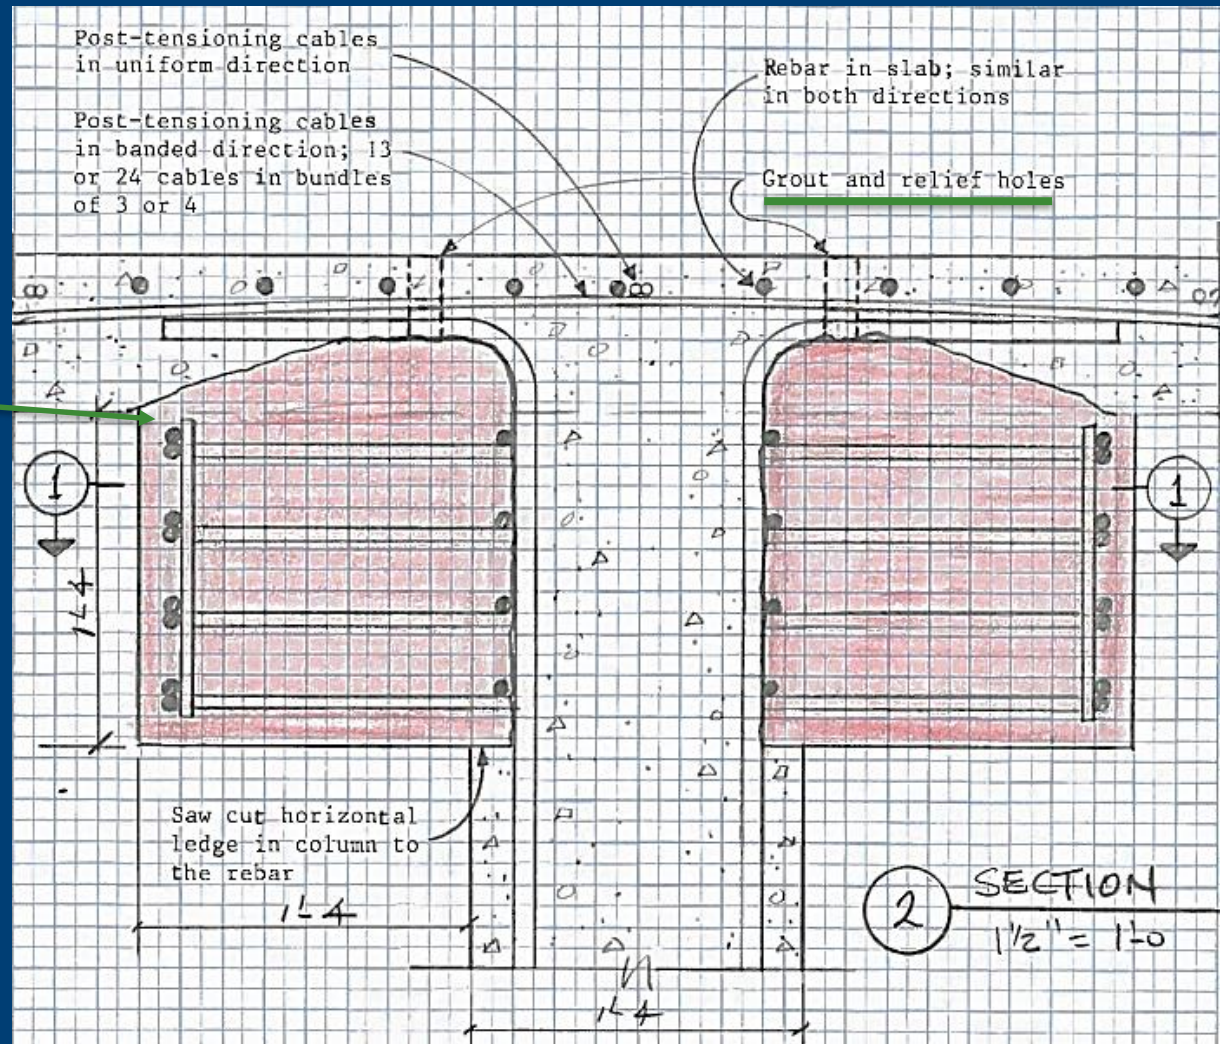 Post-tensioning cables
in uniform direction
Post-tensioning cables
in banded direction; 13
or 24 cables in bundles
of 3 or 4
Rebar in slab; similar
in both directions
Grout and relief holes
1
1
1'-4
Saw cut horizontal
ledge in column to
the rebar
1'-4
1'-4
2
SECTION
1 1/2" = 1'-0